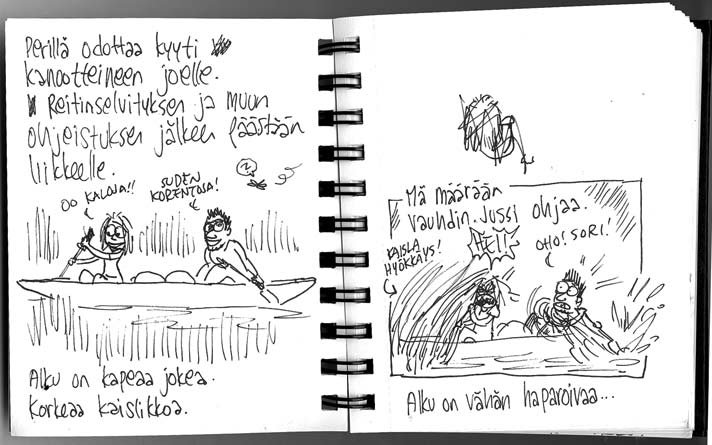 Perillä odottaa kyyti
kanootteineen joelle.
Reitinselvityksen ja muun
ohjeistuksen jälkeen päästään
liikkeelle.
OO KALOJA!!
SUDEN
KORENTOJA!
?
Alku on kapeaa jokea.
Korkeaa kaislikkoa.
Mä määrään
vauhdin. Jussi ohjaa.
KAISLA
HYÖKKÄYS!
HEII!
OHO! SORI!
Alku on vähän haparoivaa...